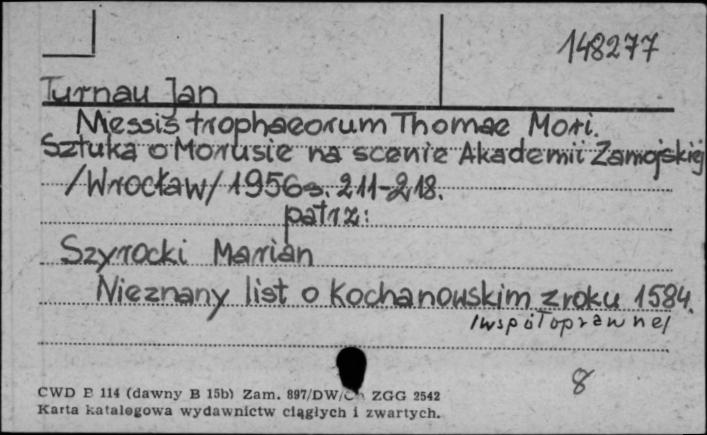 148277
Turnau Jan
Messis trophaeorum Thomae Mori.
Sztuka o Morusie na scenie Akademii Zamojskiej
/Wrocław/ 1956 s. 211-218.
patrz:
Szyrocki Marian
Nieznany list o Kochanowskim z roku 1584.
/współoprawne/
8
CWD B 114 (dawny B 15b) Zam. 897/DW/ ZGG 2542
Karta katalogowa wydawnictw ciągłych i zwartych.